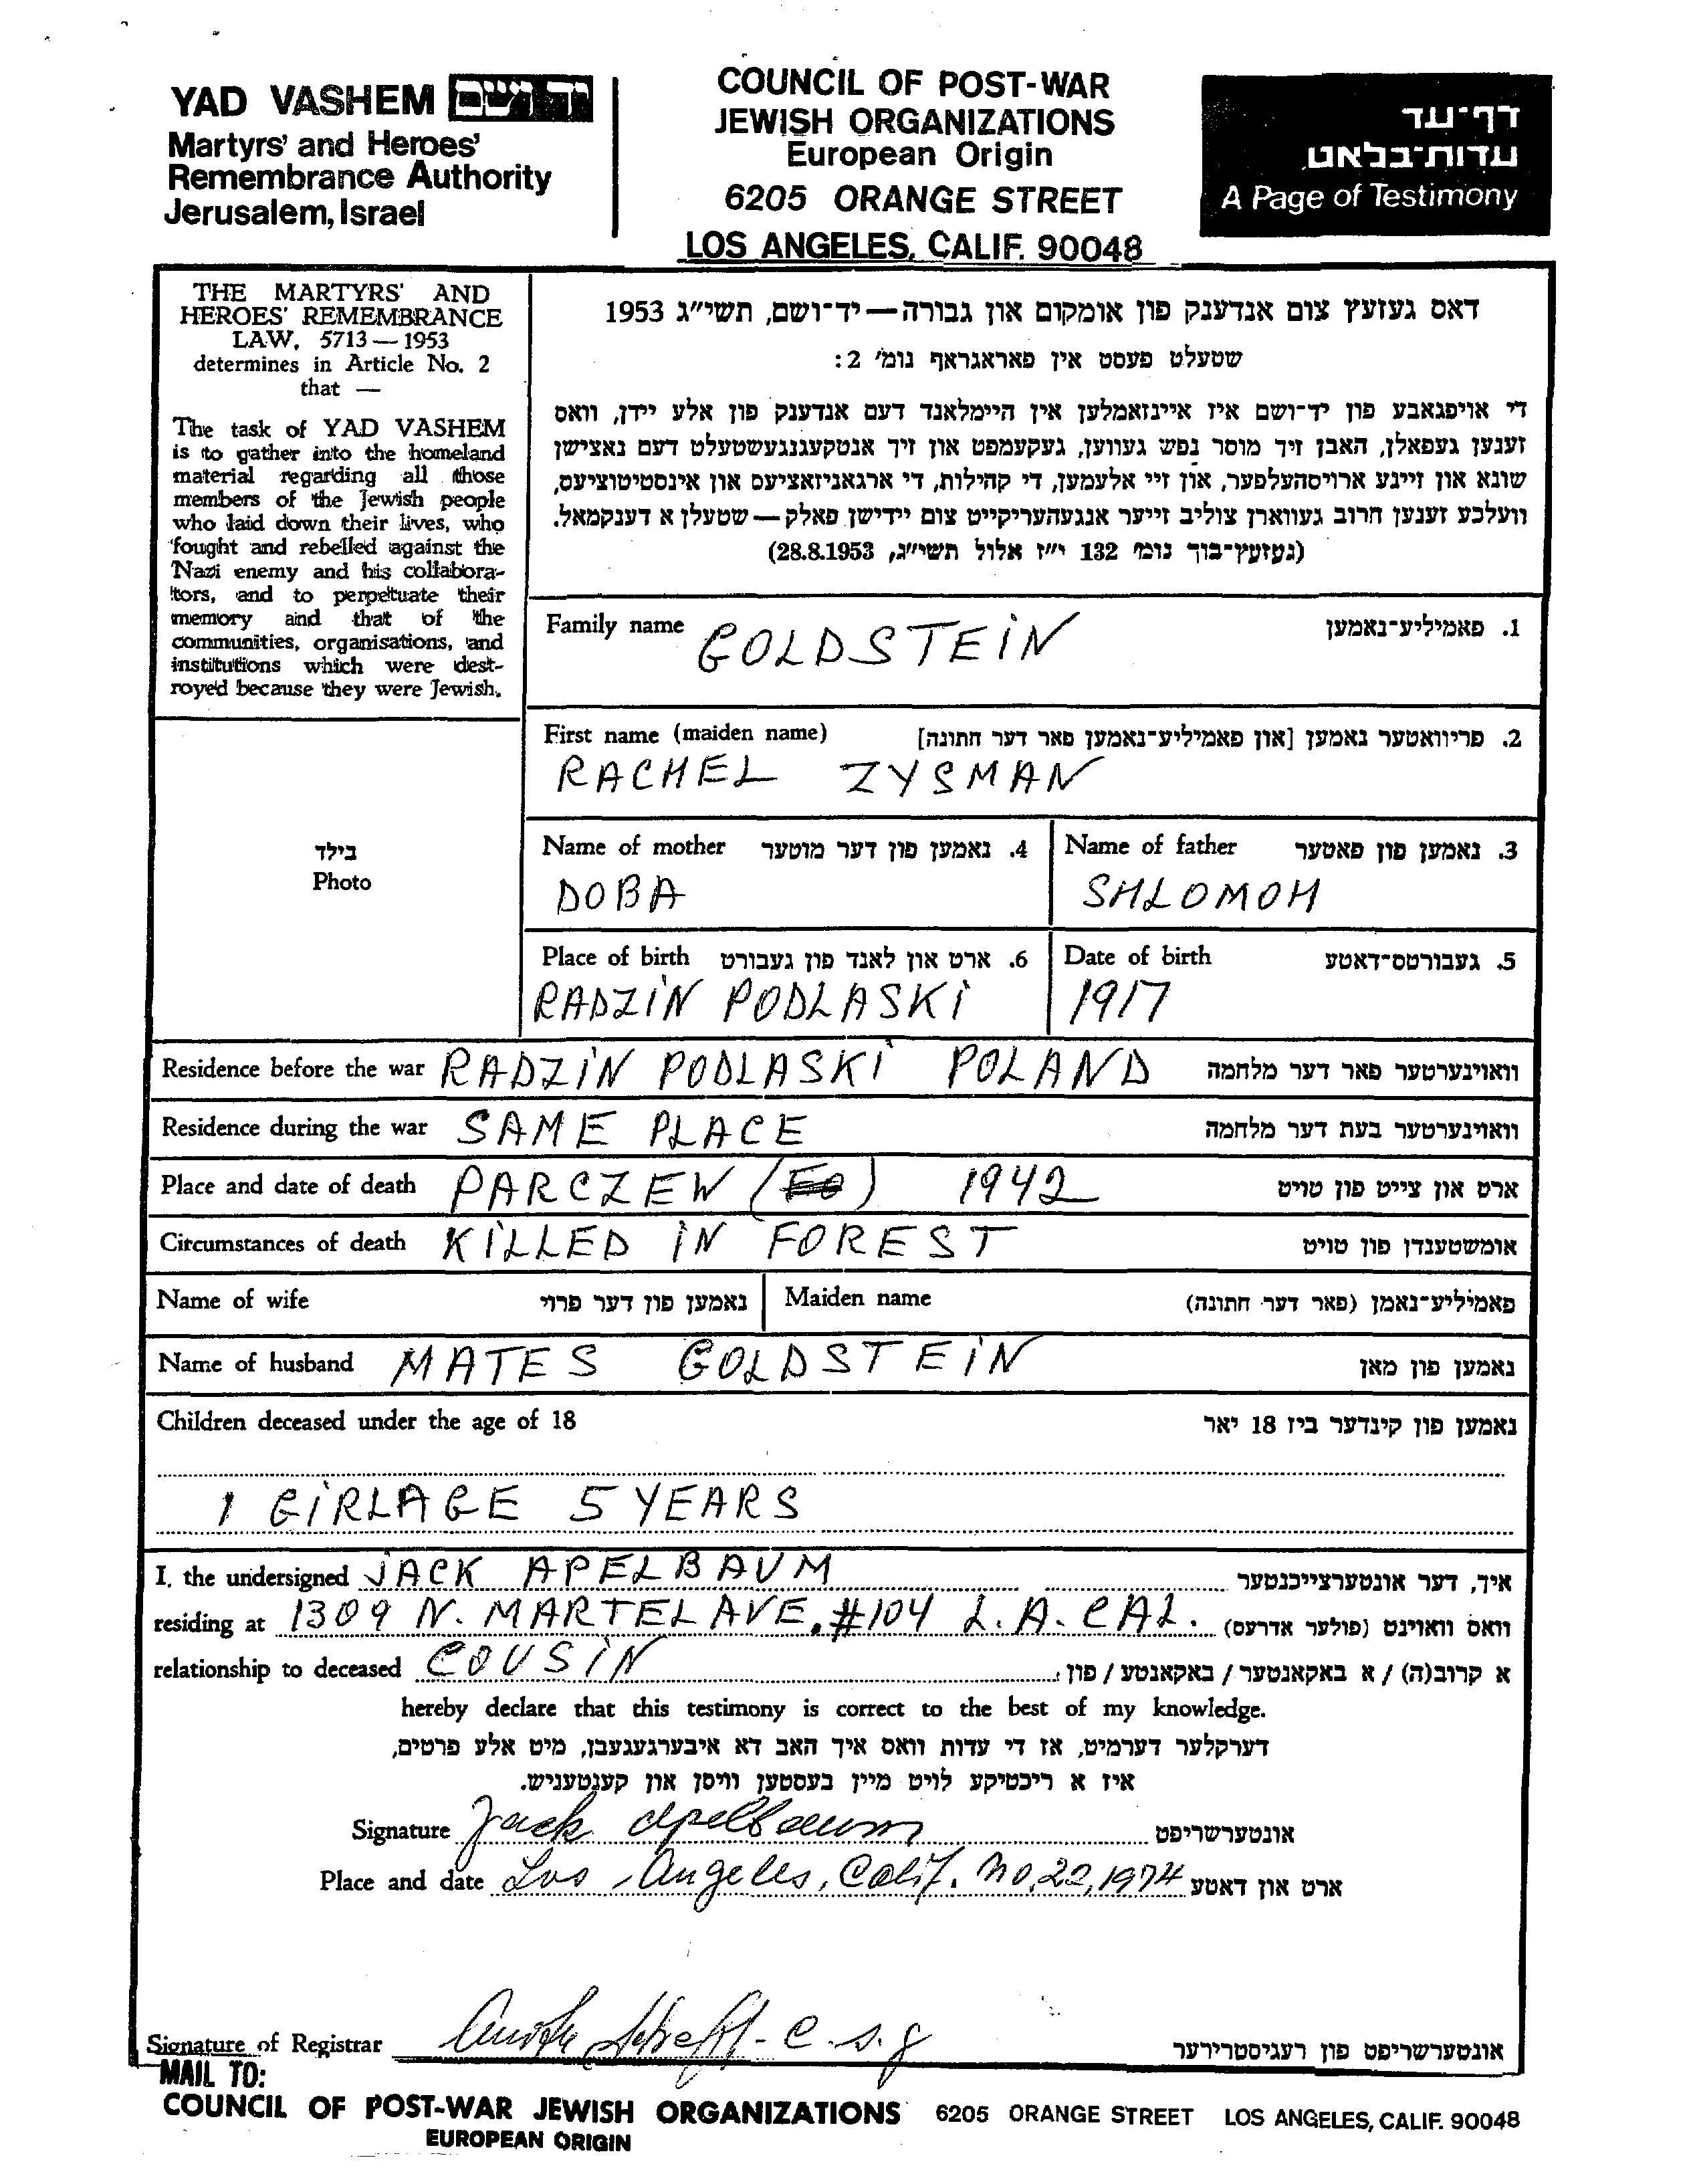 YAD VASHEM יד ושם
Martyrs' and Heroes'
Remembrance Authority
Jerusalem, Israel
COUNCIL OF POST-WAR
JEWISH ORGANIZATIONS
European Origin
6205 ORANGE STREET
LOS ANGELES, CALIF. 90048
דף-עד
עדות-בלאט
A Page of Testimony
THE MARTYRS' AND
HEROES' REMEMBRANCE
LAW, 5713—1953
determines in Article No. 2
that —
The task of YAD VASHEM
is to gather into the homeland
material regarding all those
members of the Jewish people
who laid down their lives, who
fought and rebelled against the
Nazi enemy and his collabora-
tors, and to perpetuate their
memory and that of the
communities, organisations, and
institutions which were dest-
royed because they were Jewish.
דאס געזעץ צום אנדענק פון אומקום און גבורה — יד-ושם, תשי"ג 1953
שטעלט פעסט אין פאראגראף נומ' 2:
די אויפגאבע פון יד-ושם איז איינזאמלען אין היימלאנד דעם אנדענק פון אלע יידן, וואס
זענען געפאלן, האבן זיך מוסר נפש געווען, געקעמפט און זיך אנטקעגנגעשטעלט דעם נאצישן
שונא און זיינע ארויסהעלפער, און זיי אלעמען, די קהילות, די ארגאניזאציעס און אינסטיטוציעס,
וועלכע זענען חרוב געווארן צוליב זייער אנגעהעריקייט צום יידישן פאלק — שטעלן א דענקמאל.
(געזעץ-בוך נומ' 132 י"ז אלול תשי"ג, 28.8.1953)
Family name GOLDSTEIN 1. פאמיליע-נאמען
First name (maiden name) 2. פריוואטער נאמען [און פאמיליע-נאמען פאר דער חתונה]
RACHEL ZYSMAN
Name of mother 4. נאמען פון דער מוטער
DOBA
Name of father 3. נאמען פון פאטער
SHLOMOH
Place of birth 6. ארט און לאנד פון געבורט
RADZIN PODLASKI
Date of birth 5. געבורטס-דאטע
1917
בילד
Photo
Residence before the war RADZIN PODLASKI POLAND וואוינערטער פאר דער מלחמה
Residence during the war SAME PLACE וואוינערטער בעת דער מלחמה
Place and date of death PARCZEW ( ) 1942 ארט און צייט פון טויט
Circumstances of death KILLED IN FOREST אומשטענדן פון טויט
Name of wife נאמען פון דער פרוי Maiden name פאמיליע-נאמן (פאר דער חתונה)
Name of husband MATES GOLDSTEIN נאמען פון מאן
Children deceased under the age of 18 נאמען פון קינדער ביז 18 יאר
1 GIRL AGE 5 YEARS
I, the undersigned JACK APELBAUM איך, דער אונטערצייכנטער
residing at 1309 N. MARTEL AVE. #104 L.A. CAL. וואס וואוינט (פולער אדרעס)
relationship to deceased COUSIN א קרוב(ה) / א באקאנטער / באקאנטע / פון
hereby declare that this testimony is correct to the best of my knowledge.
דערקלער דערמיט, אז די עדות וואס איך האב דא איבערגעגעבן, מיט אלע פרטים,
איז א ריכטיקע לויט מיין בעסטען וויסן און קענטעניש.
Signature Jack Apelbaum אונטערשריפט
Place and date Los Angeles, Calif. No. 22, 1974 ארט און דאטע
Signature of Registrar אונטערשריפט פון רעגיסטרירער
MAIL TO:
COUNCIL OF POST-WAR JEWISH ORGANIZATIONS 6205 ORANGE STREET LOS ANGELES, CALIF. 90048
EUROPEAN ORIGIN